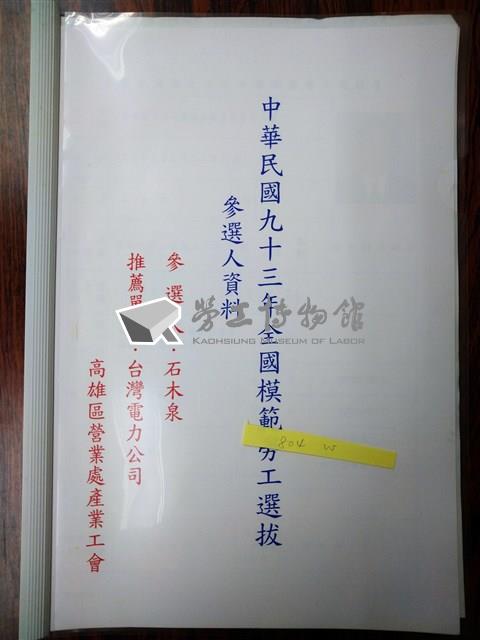 中華民國九十三年全國模範勞工選拔
參選人資料
參選人：石木泉
推薦單 ：台灣電力公司
高雄區營業處產業工會
勞工博物館
KAOHSIUNG MUSEUM OF LABOR
804 W